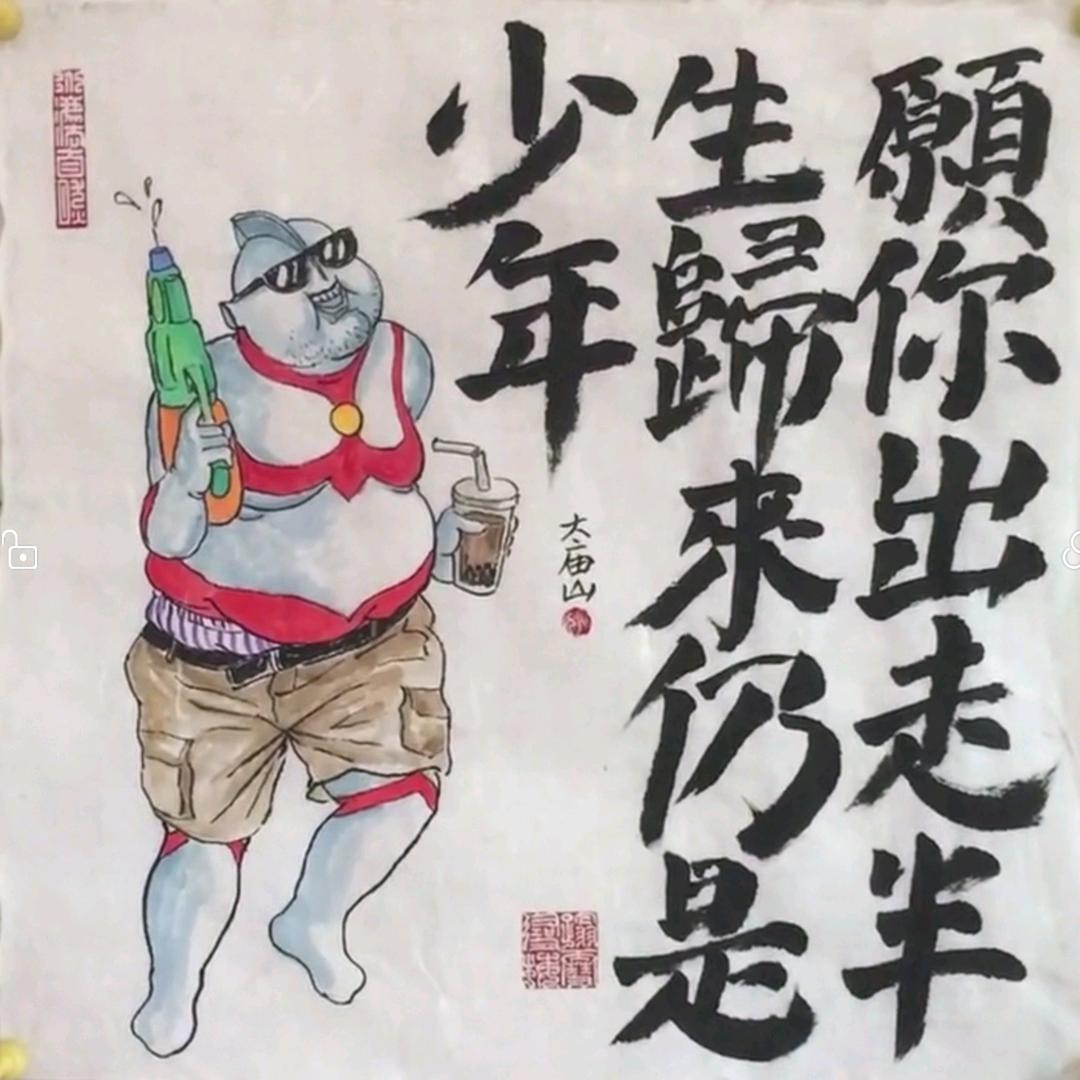 願你出走半
生歸來仍是
少年
大庙山